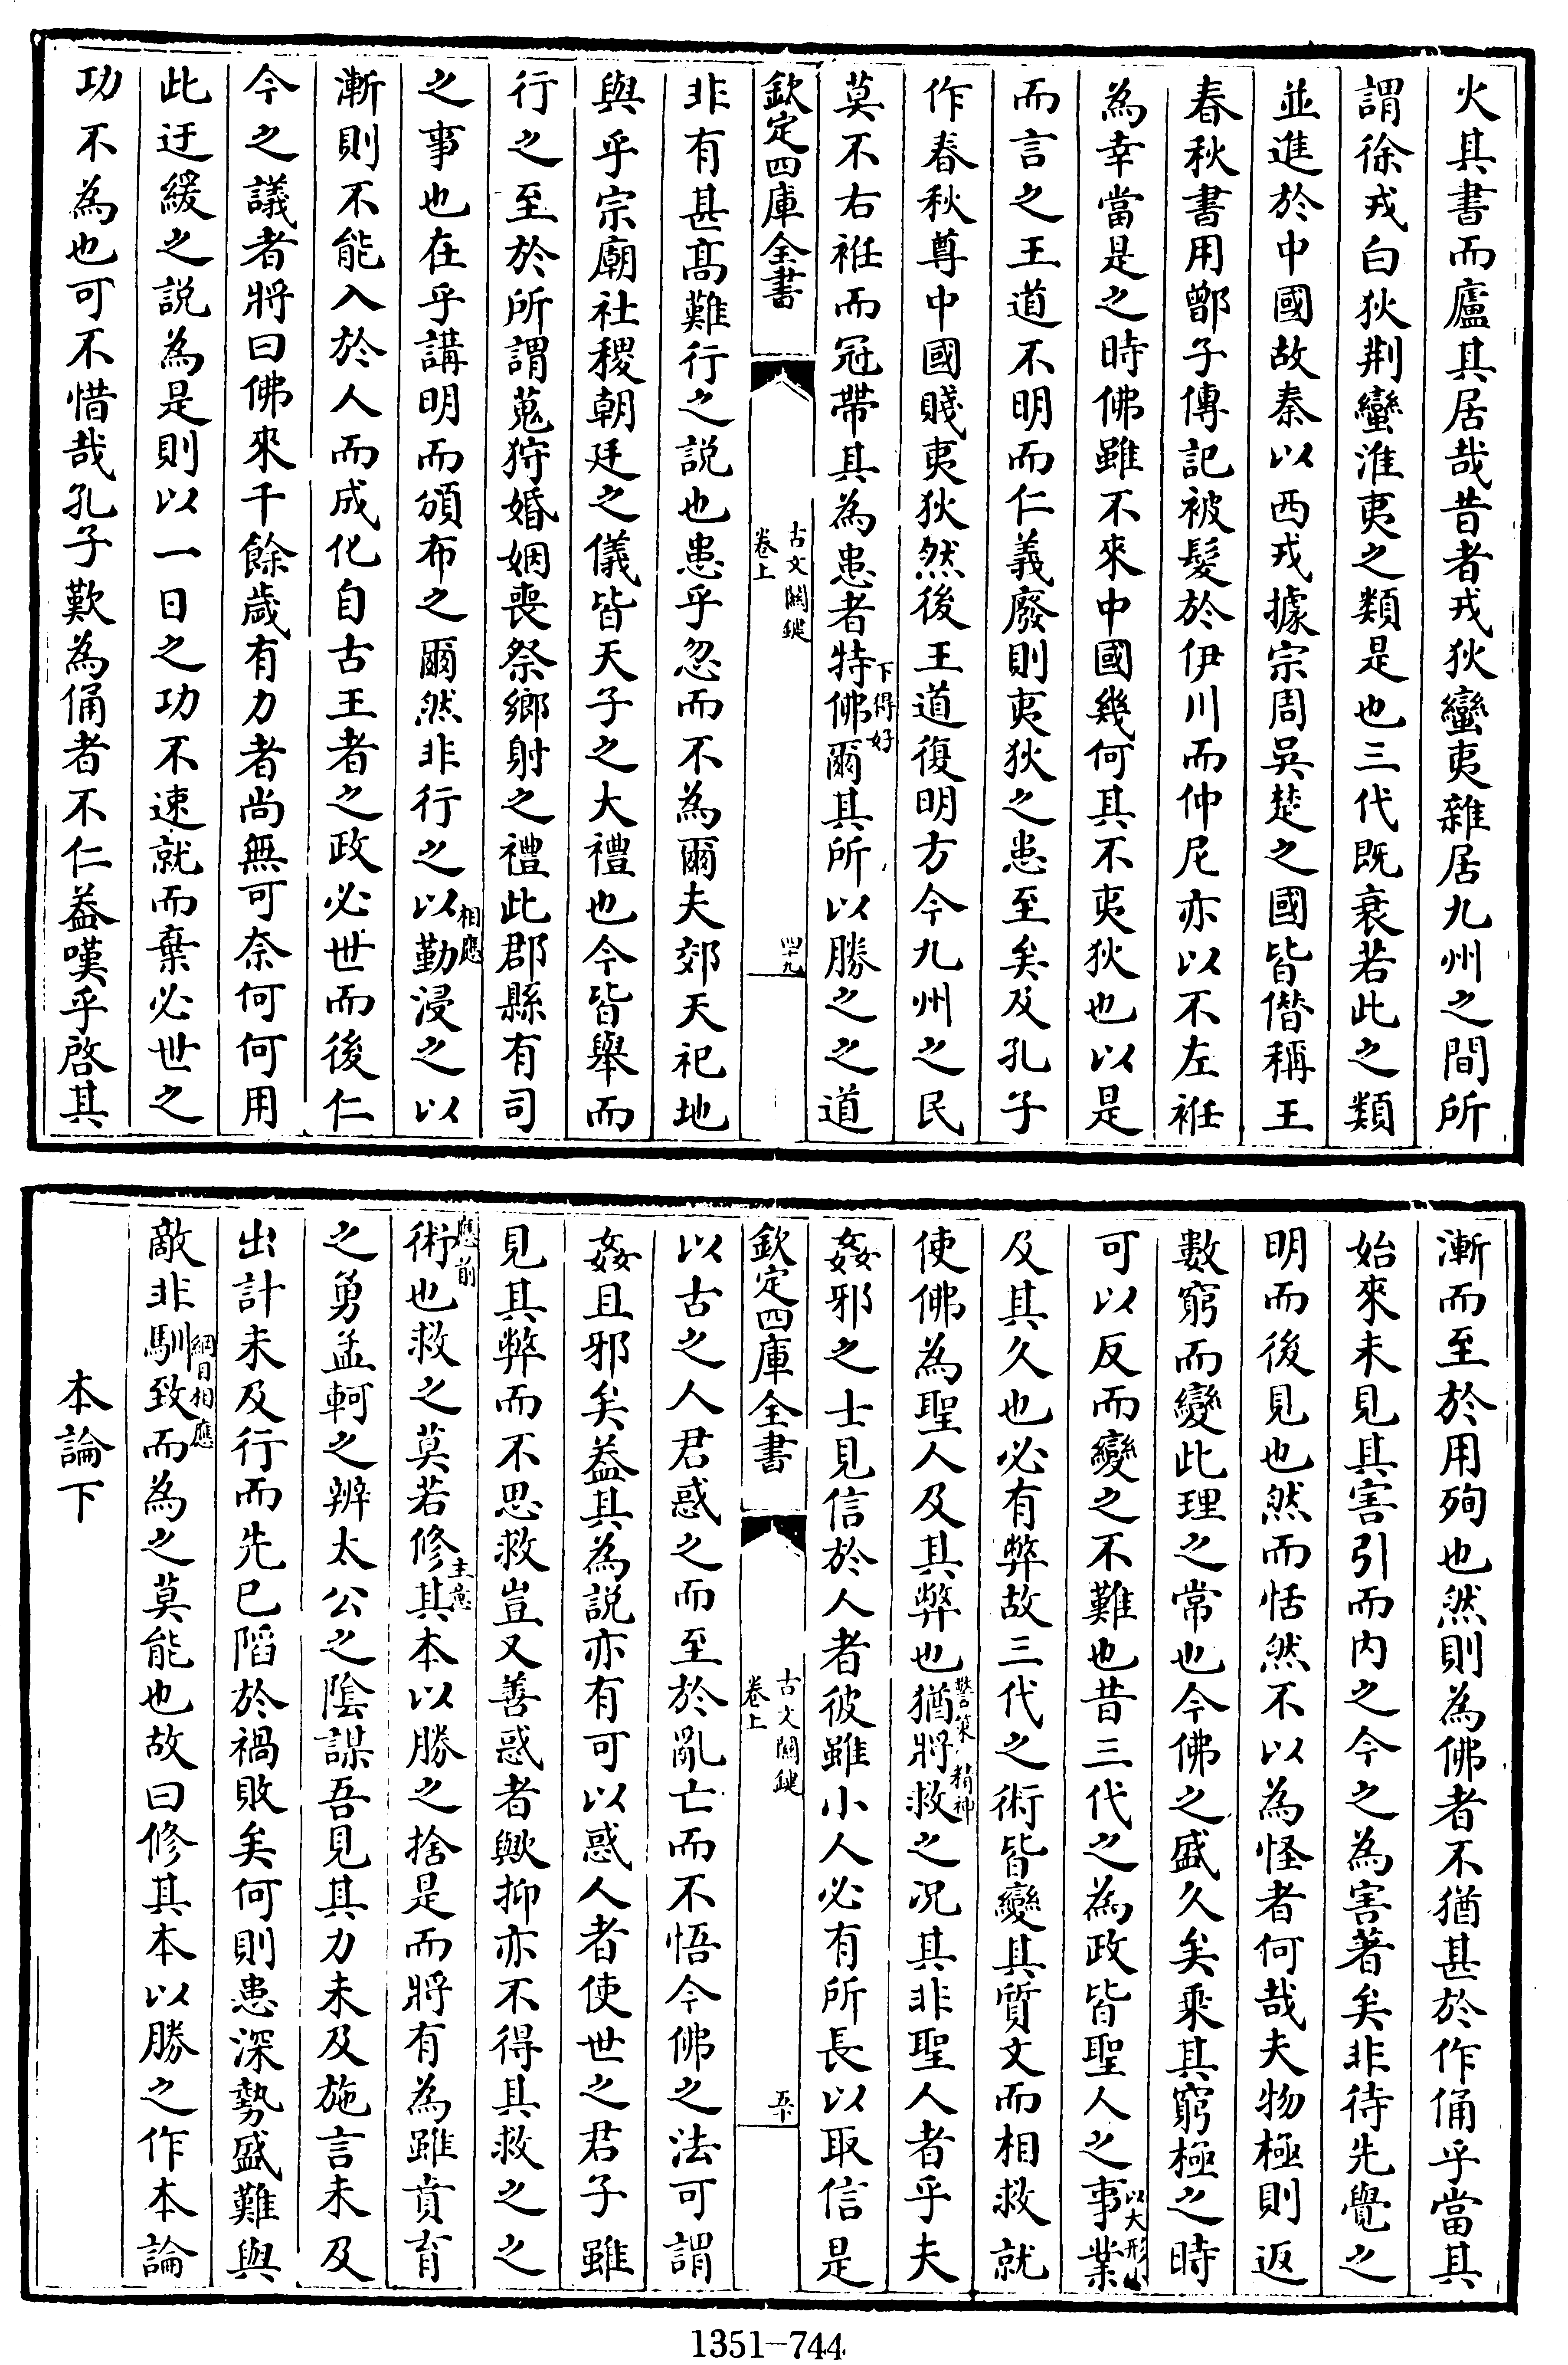 火其書而廬其居哉昔者戎狄蠻夷雜居九州之間所
謂徐戎白狄荆蠻淮夷之類是也三代既衰若此之類
並進於中國故秦以西戎據宗周吳楚之國皆僭稱王
春秋書用鄫子傳記被髮於伊川而仲尼亦以不左袵
為幸當是之時佛雖不來中國幾何其不夷狄也以是
而言之王道不明而仁義廢則夷狄之患至矣及孔子
作春秋尊中國賤夷狄然後王道復明方今九州之民
莫不右袵而冠帶其為患者特佛爾其所以勝之之道
下得好
欽定四庫全書
古文關鍵
卷上
四十九
非有甚髙難行之説也患乎忽而不為爾夫郊天祀地
與乎宗廟社稷朝廷之儀皆天子之大禮也今皆舉而
行之至於所謂蒐狩婚姻喪祭鄉射之禮此郡縣有司
之事也在乎講明而頒布之爾然非行之以勤浸之以
相應
漸則不能入於人而成化自古王者之政必世而後仁
今之議者將曰佛來千餘歲有力者尚無可奈何何用
此迂緩之説為是則以一日之功不速就而棄必世之
功不為也可不惜哉孔子歎為俑者不仁益嘆乎啓其
漸而至於用殉也然則為佛者不猶甚於作俑乎當其
始來未見其害引而内之今之為害著矣非待先覺之
明而後見也然而恬然不以為怪者何哉夫物極則返
數窮而變此理之常也今佛之盛久矣乘其窮極之時
可以反而變之不難也昔三代之為政皆聖人之事業
以大形小
及其久也必有弊故三代之術皆變其質文而相救就
使佛為聖人及其弊也猶將救之况其非聖人者乎夫
警策精神
姦邪之士見信於人者彼雖小人必有所長以取信是
欽定四庫全書
古文關鍵
卷上
五十
以古之人君惑之而至於亂亡而不悟今佛之法可謂
姦且邪矣益其為説亦有可以惑人者使世之君子雖
見其弊而不思救豈又善惑者歟抑亦不得其救之之
術也救之莫若修其本以勝之捨是而將有為雖賁育
應前
主意
之勇孟軻之辨太公之隂謀吾見其力未及施言未及
出計未及行而先已陷於禍敗矣何則患深勢盛難與
敵非馴致而為之莫能也故曰修其本以勝之作本論
綱目相應
本論下
1351-744